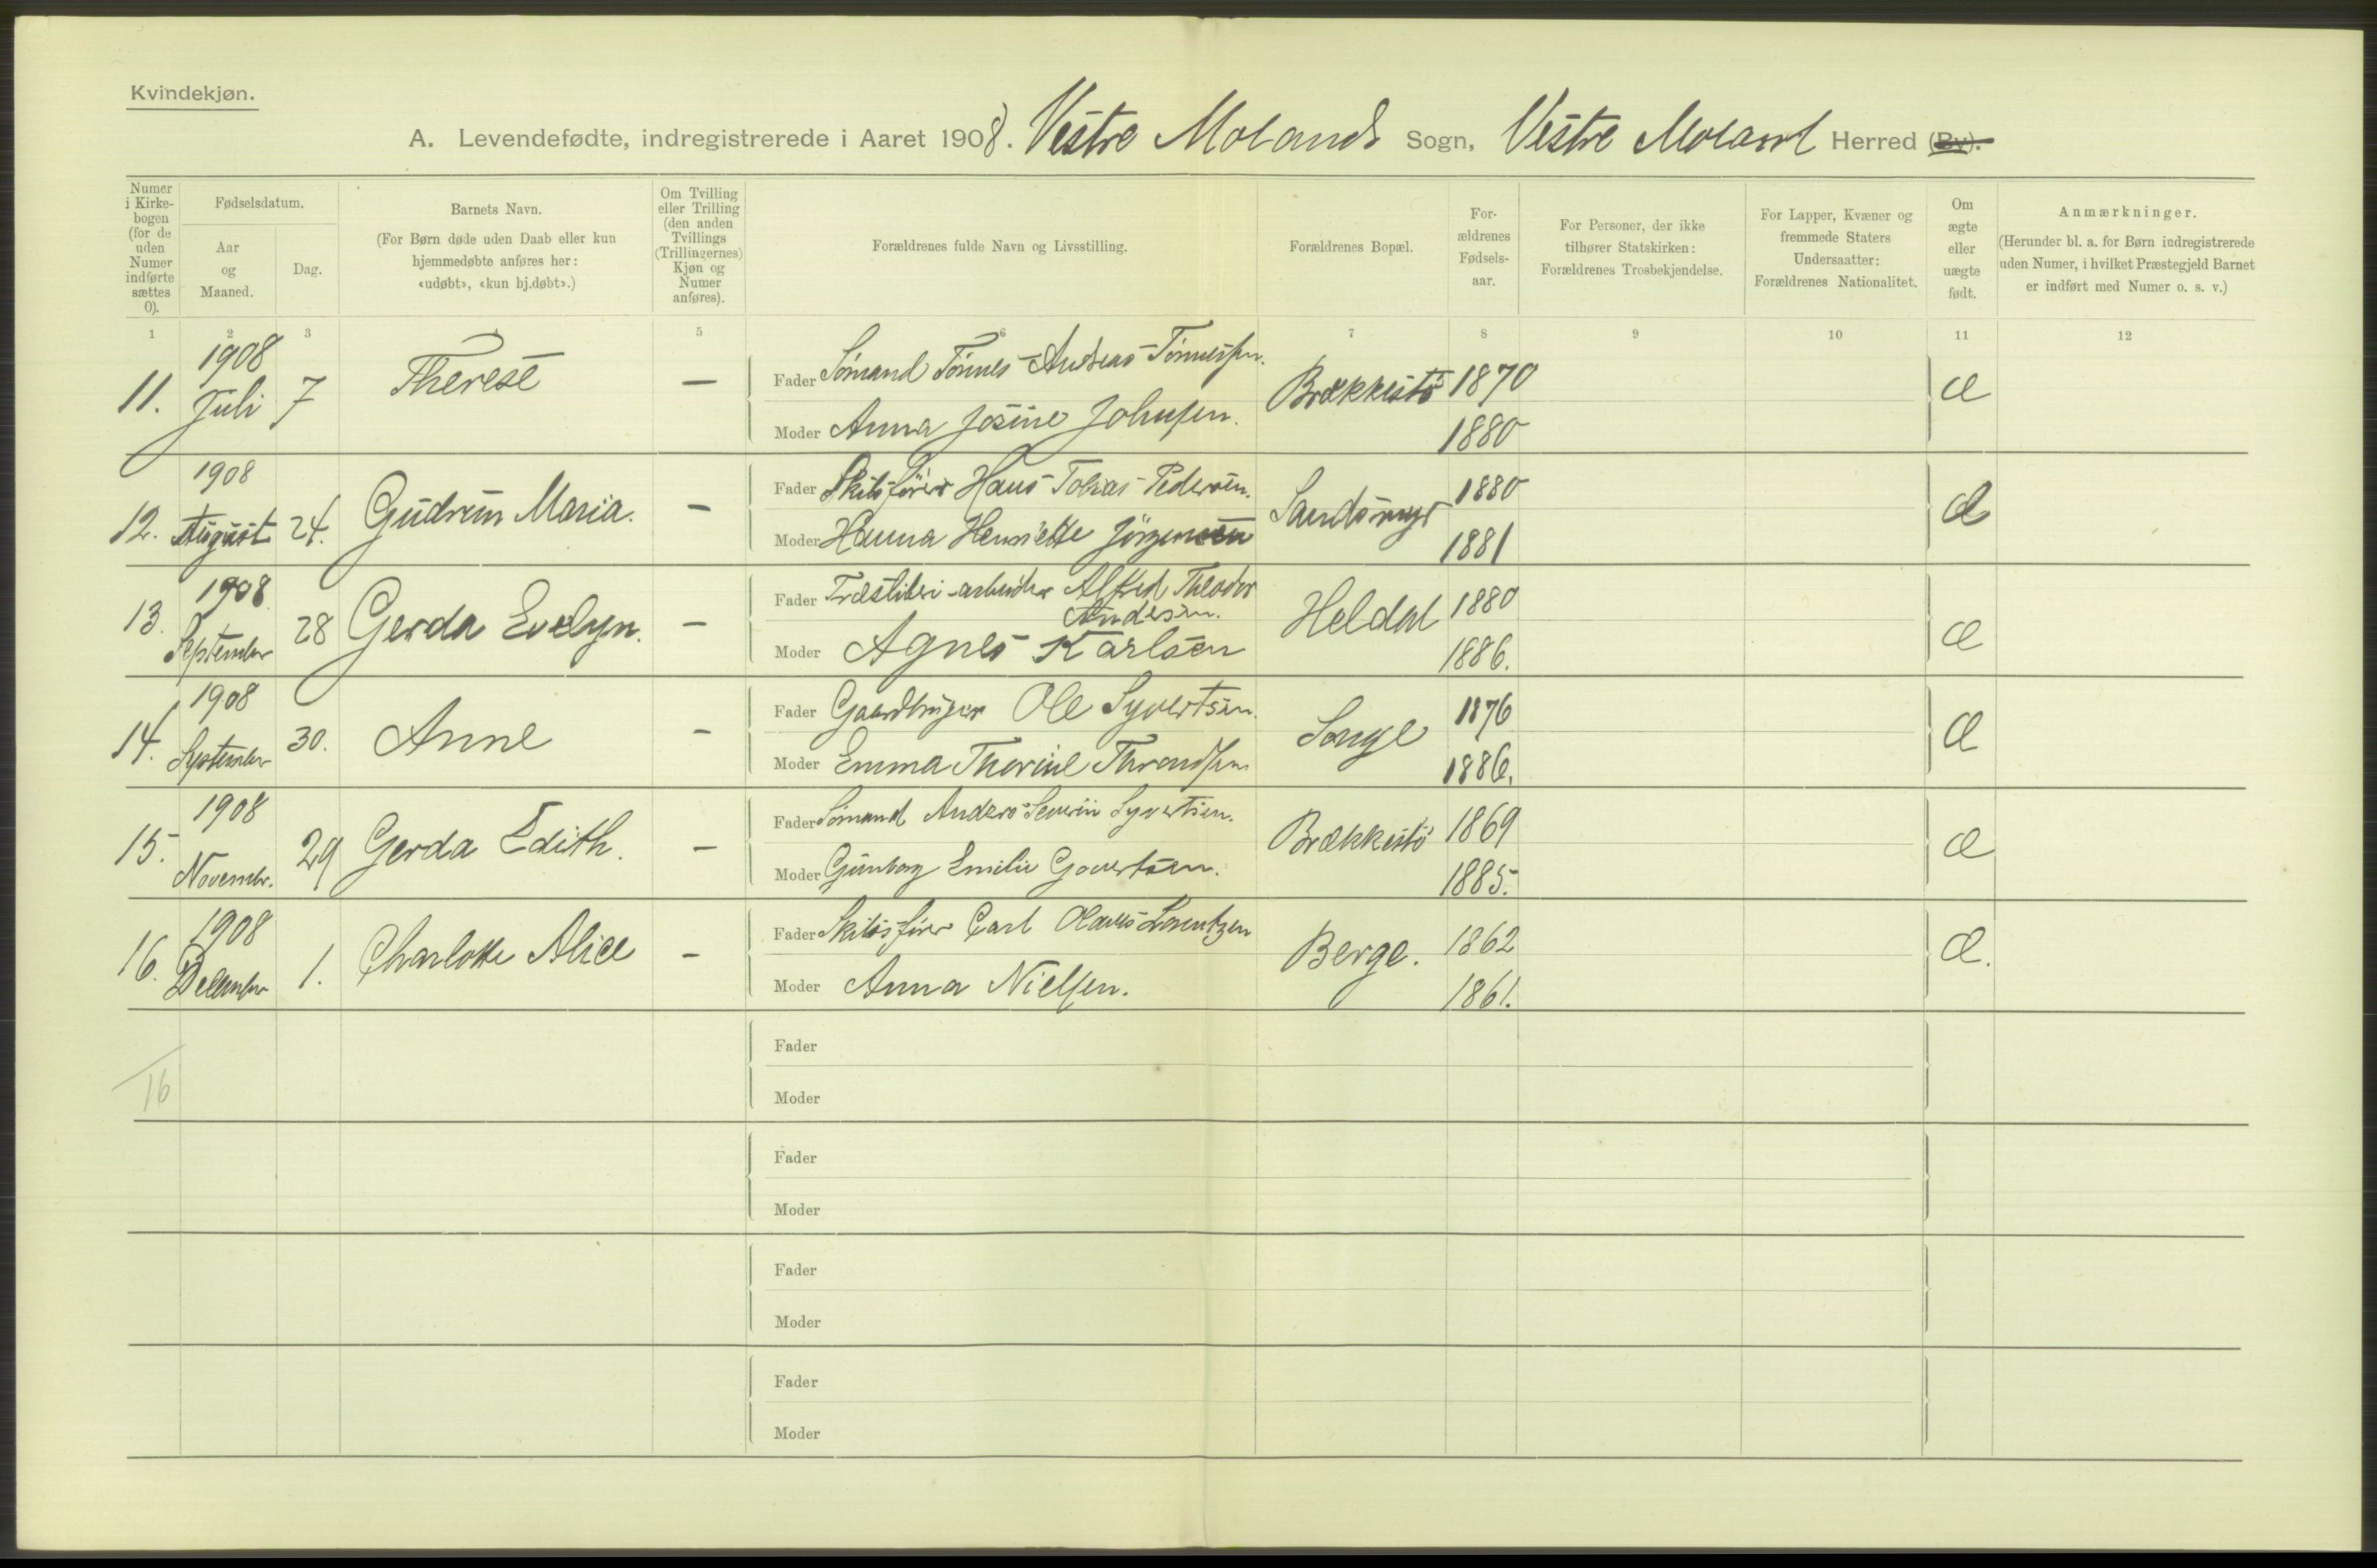 Kvindekjøn.
A. Levendefødte, indregistrerede i Aaret 1908. Vestre Molands Sogn, Vestre Moland Herred (By).
Numer i Kirkebogen (for de uden Numer indførte sættes 0).
Fødselsdatum.
Aar og Maaned.
Dag.
Barnets Navn.
(For Børn døde uden Daab eller kun hjemmedøbte anføres her: «udøbt», «kun hj.døbt».)
Om Tvilling eller Trilling (den anden Tvillings (Trillingernes) Kjøn og Numer anføres).
Forældrenes fulde Navn og Livsstilling.
Forældrenes Bopæl.
Forældrenes Fødselsaar.
For Personer, der ikke tilhører Statskirken: Forældrenes Trosbekjendelse.
For Lapper, Kvæner og fremmede Staters Undersaatter: Forældrenes Nationalitet.
Om ægte eller uægte født.
Anmærkninger.
(Herunder bl. a. for Børn indregistrerede uden Numer, i hvilket Præstegjeld Barnet er indført med Numer o. s. v.)
1 2 3 4 5 6 7 8 9 10 11 12
11. 1908 Juli 7 Therese — Fader Sømand Tönnes Andreas Tönnessen. Brækkestö 1870 æ
Moder Anna Josine Johnsen. 1880
12. 1908 August 24. Gudrun Maria. — Fader Skibsförer Hans Tobias Pedersen. Sandsmyr 1880 æ
Moder Hanna Henriette Jörgensen 1881
13. 1908 September 28 Gerda Evelyn. — Fader Træsliberi-arbeider Alfred Theodor Andersen. Heldal 1880 æ
Moder Agnes Karlsen 1886.
14. 1908 September 30. Anne — Fader Gaardbruger Ole Syvertsen. Songe 1876 æ
Moder Emma Thorine Throndsen 1886.
15. 1908 Novembr. 29 Gerda Edith. — Fader Sömand Anders Severin Syvertsen. Brækkestö 1869 æ
Moder Gunborg Emilie Govertsen. 1885.
16. 1908 December 1. Charlotte Alice — Fader Skibsförer Carl Olaus Lorentzen Berge. 1862 æ.
Moder Anna Nielsen. 1861.
Fader
16
Moder
Fader
Moder
Fader
Moder
Fader
Moder